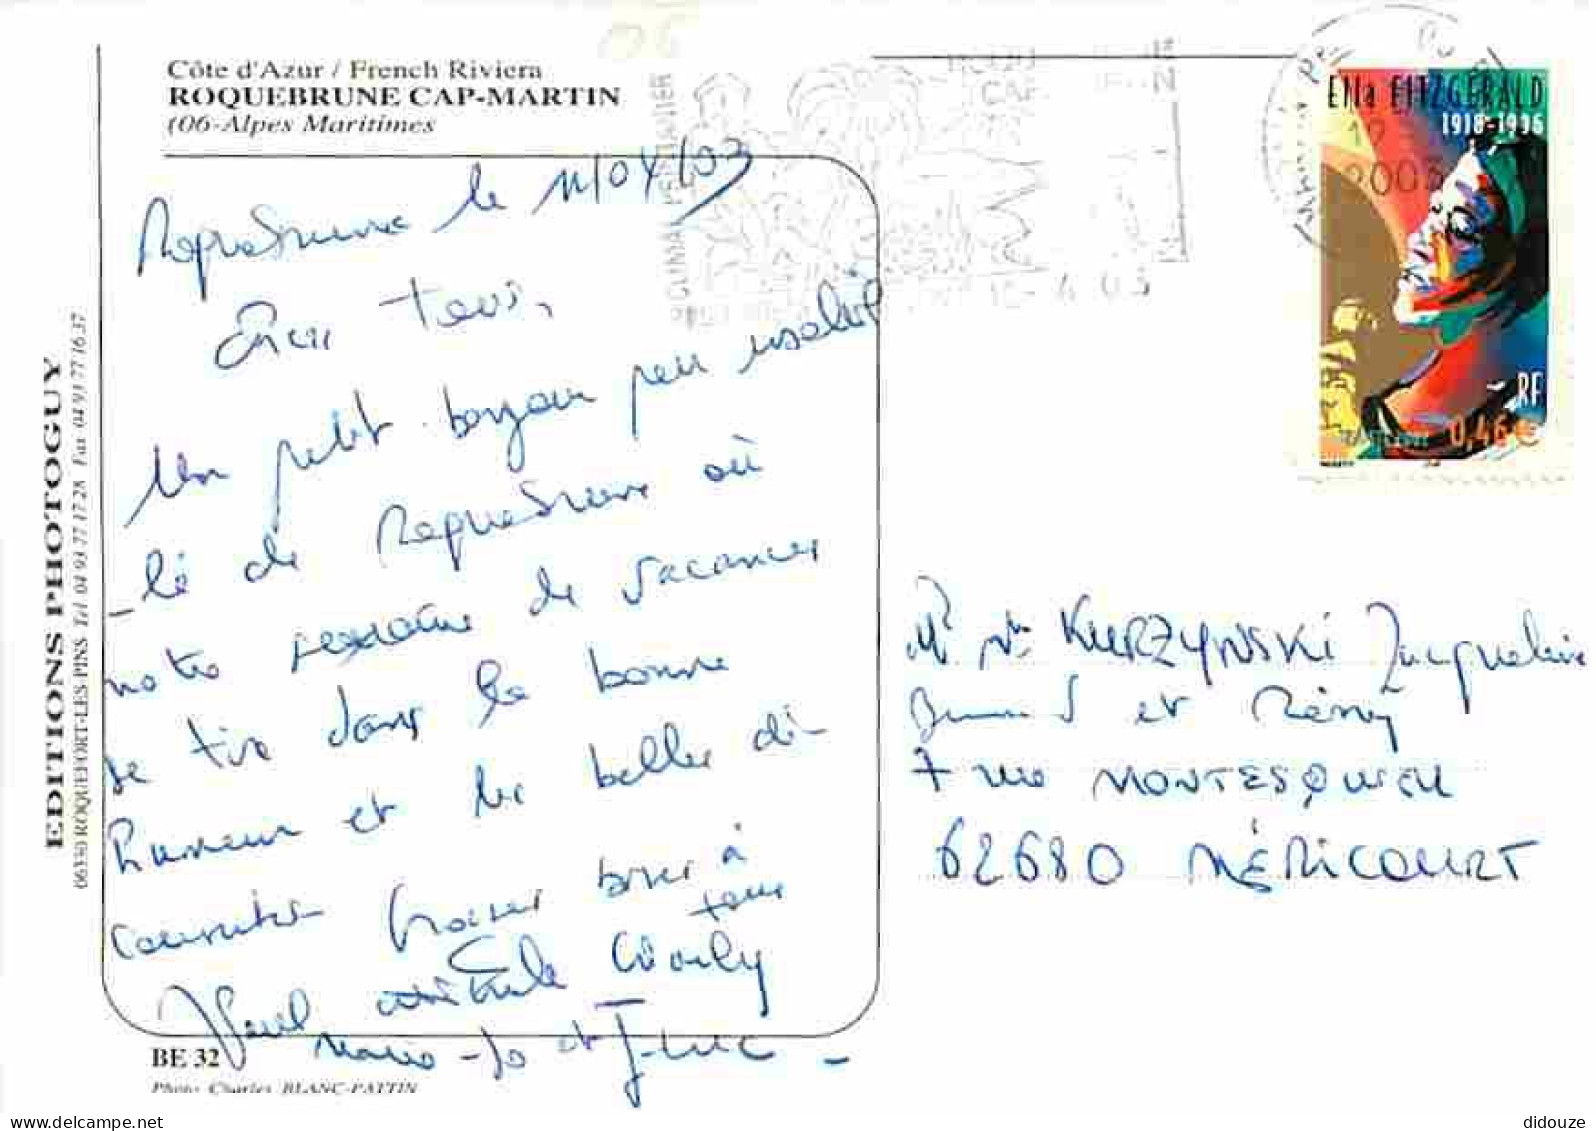 Côte d'Azur / French Riviera
ROQUEBRUNE CAP-MARTIN
(06-Alpes Maritimes
Roquebrune le 11/04/03
Chers tous,
Un petit bonjour peu ensoleil
-lé de Roquebrune où
notre semaine de vacances
se tire dans la bonne
humeur et les belles dé-
couvertes Grosses bises à
tous
Paul Cécile Charly
Marie-Jo et J-Luc -
BE 32
Photo Charles BLANC-PATTIN
EDITIONS PHOTOGUY
06330 ROQUEFORT-LES PINS Tél 04 93 77 17 28 Fax 04 93 77 16 37
2003
4 03
Ella FITZGERALD
1918-1996
RF
0,46 €
Mr Mme KURZYNSKI Jacqueline
Bernard et Rémy
7 rue MONTESQUIEU
62680 MÉRICOURT
www.delcampe.net
didouze